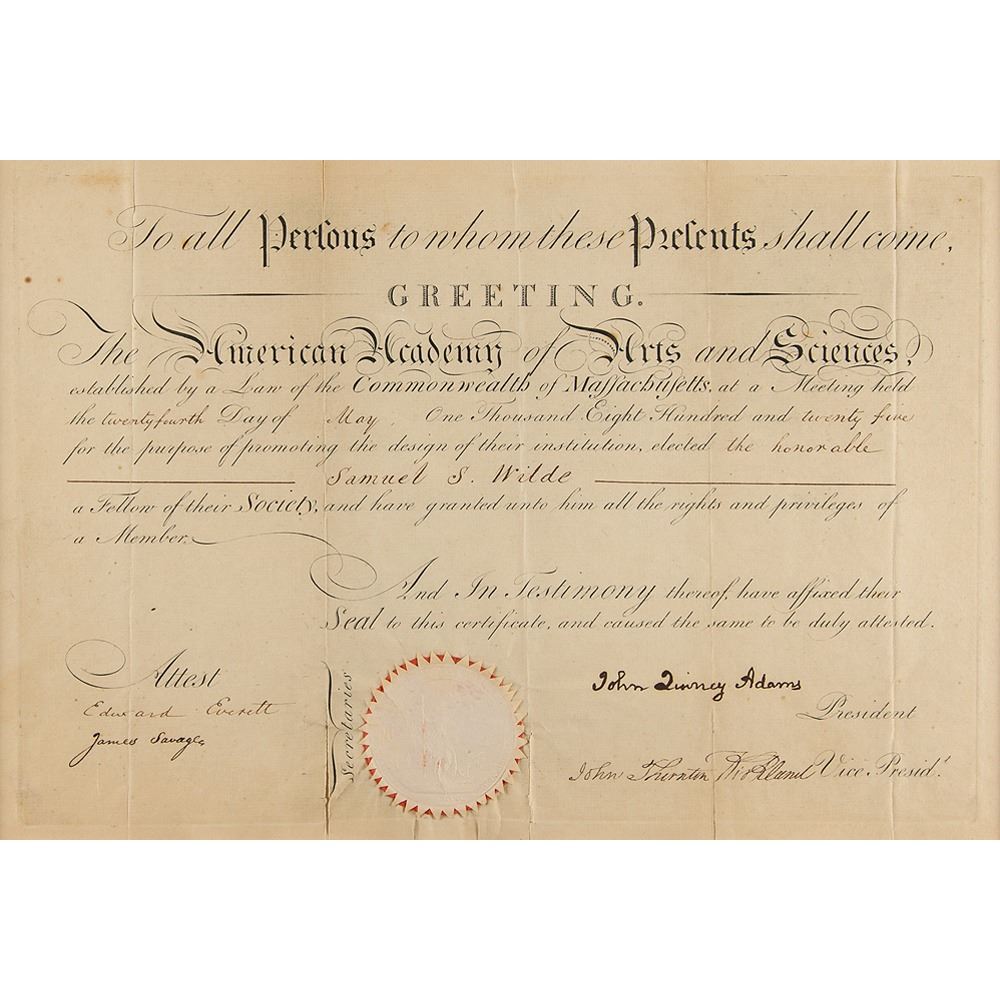 To all Perſons to whom these Preſents shall come,
GREETING.
The American Academy of Arts and Sciences,
established by a Law of the Commonwealth of Maſſachusetts, at a Meeting held
the twenty fourth Day of May, One Thousand Eight Hundred and twenty five
for the purpose of promoting the design of their institution, elected the honorable
Samuel S. Wilde
a Fellow of their Society, and have granted unto him all the rights and privileges of
a Member.
And In Testimony thereof, have affixed their
Seal to this certificate, and caused the same to be duly attested.
Attest
Edward Everett
James Savage
Secretaries
John Quincy Adams
President
John Thornton Kirkland Vice Presidt.